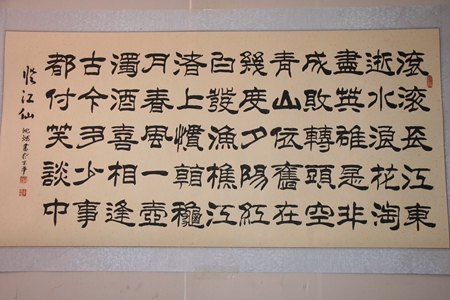 滾滾長江東
逝水浪花淘
盡英雄是非
成敗轉頭空
青山依舊在
幾度夕陽紅
白發漁樵江
渚上慣看龝
月春風一壺
濁酒喜相逢
古今多少事
都付笑談中
江仙